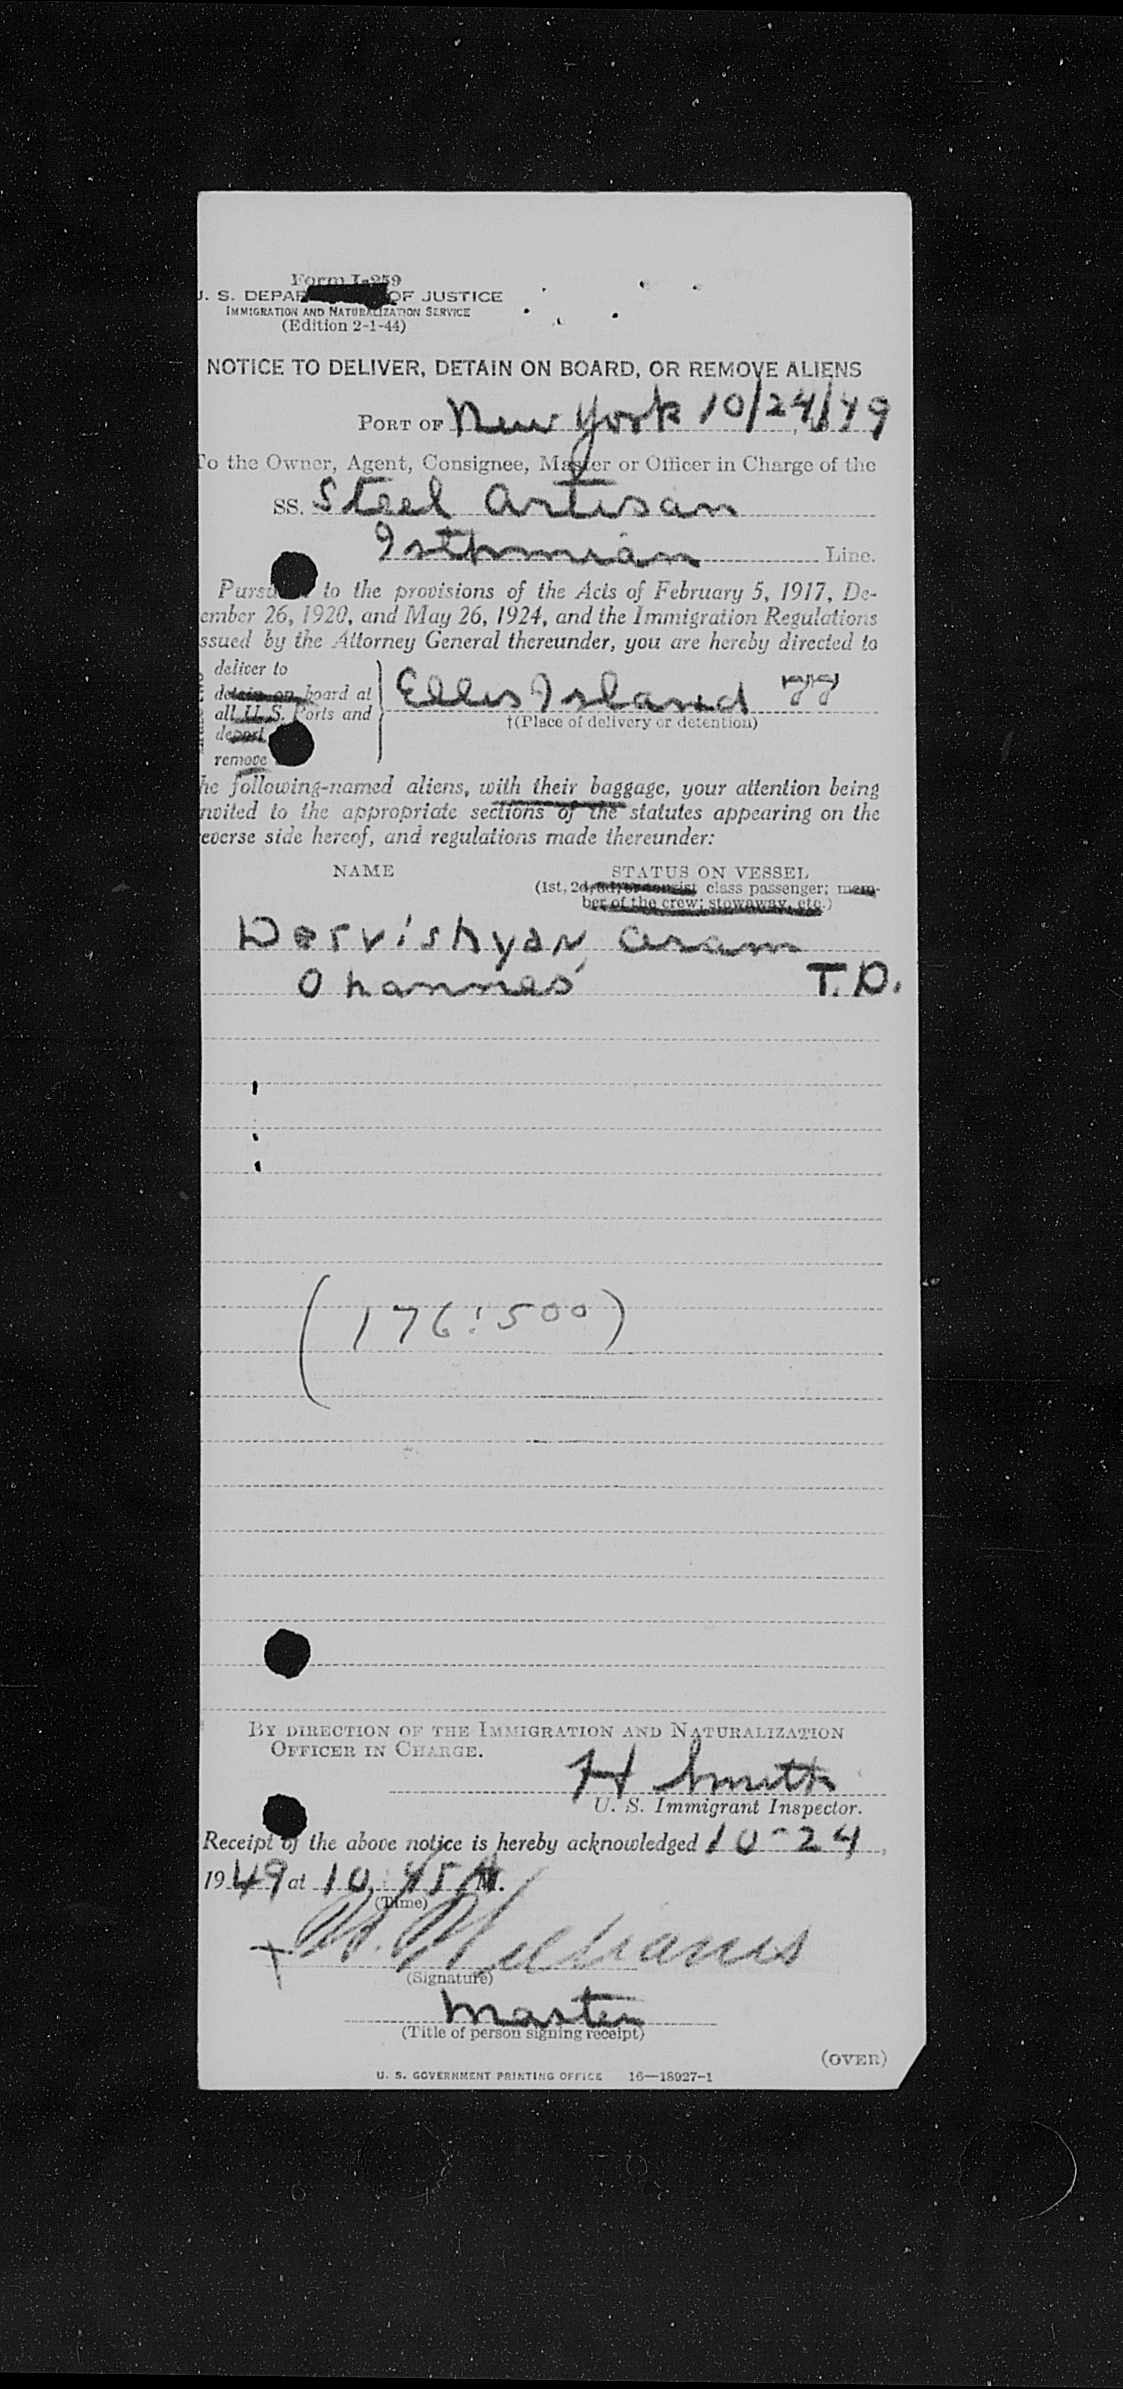 Form I-259
U. S. DEPAR OF JUSTICE
IMMIGRATION AND NATURALIZATION SERVICE
(Edition 2-1-44)
NOTICE TO DELIVER, DETAIN ON BOARD, OR REMOVE ALIENS
PORT OF New York 10/24/49
To the Owner, Agent, Consignee, Master or Officer in Charge of the
SS. Steel Artisan
Isthmian Line.
Pursu to the provisions of the Acts of February 5, 1917, De-
cember 26, 1920, and May 26, 1924, and the Immigration Regulations
issued by the Attorney General thereunder, you are hereby directed to
deliver to
detain on board at
all U. S. Ports and
deport
remove
Ellis Island
†(Place of delivery or detention)
he following-named aliens, with their baggage, your attention being
nvited to the appropriate sections of the statutes appearing on the
everse side hereof, and regulations made thereunder:
NAME STATUS ON VESSEL
(1st, 2d, 3d, or consist class passenger; mem-
ber of the crew; stowaway, etc.)
Dervishyan, Aram
Ohannes T.D.
(176:500)
BY DIRECTION OF THE IMMIGRATION AND NATURALIZATION
OFFICER IN CHARGE.
H Smith
U. S. Immigrant Inspector.
Receipt of the above notice is hereby acknowledged 10-24,
1949 at 10:45 A M.
(Time)
W. Williams
(Signature)
Master
(Title of person signing receipt)
(OVER)
U. S. GOVERNMENT PRINTING OFFICE 16—18927-1